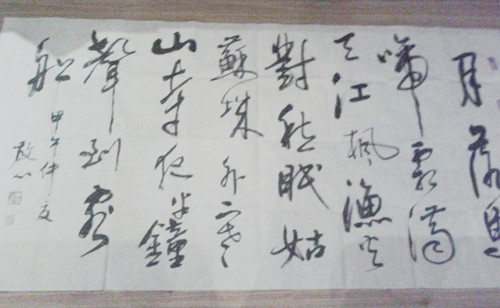 月落烏
啼霜滿
天江楓漁火
對愁眠姑
蘇城外寒
山寺夜半鐘
聲到客
船
甲午仲夏